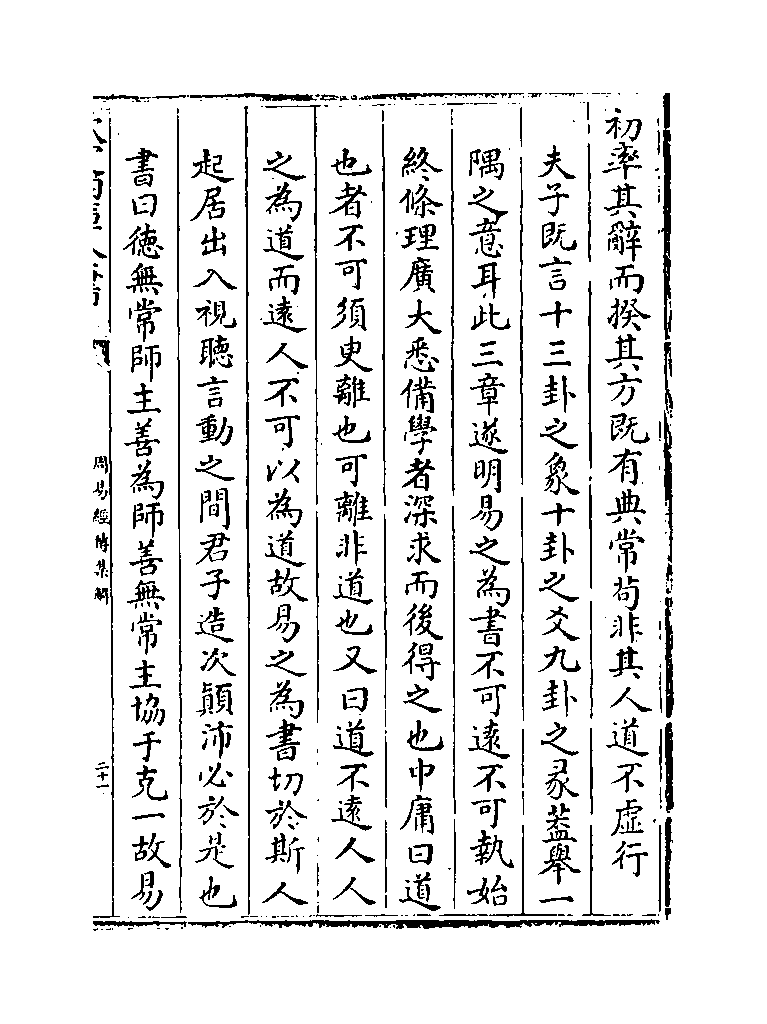 初率其辭而揆其方既有典常茍非其人道不虛行
夫子既言十三卦之象十卦之爻九卦之彖葢舉一
隅之意耳此三章遂明易之為書不可遠不可執始
終條理廣大悉備學者深求而後得之也中庸曰道
也者不可須臾離也可離非道也又曰道不遠人人
之為道而遠人不可以為道故易之為書切於斯人
起居出入視聽言動之間君子造次顛沛必於是也
書曰徳無常師主善為師善無常主協于克一故易
周易經傳集解
二十一